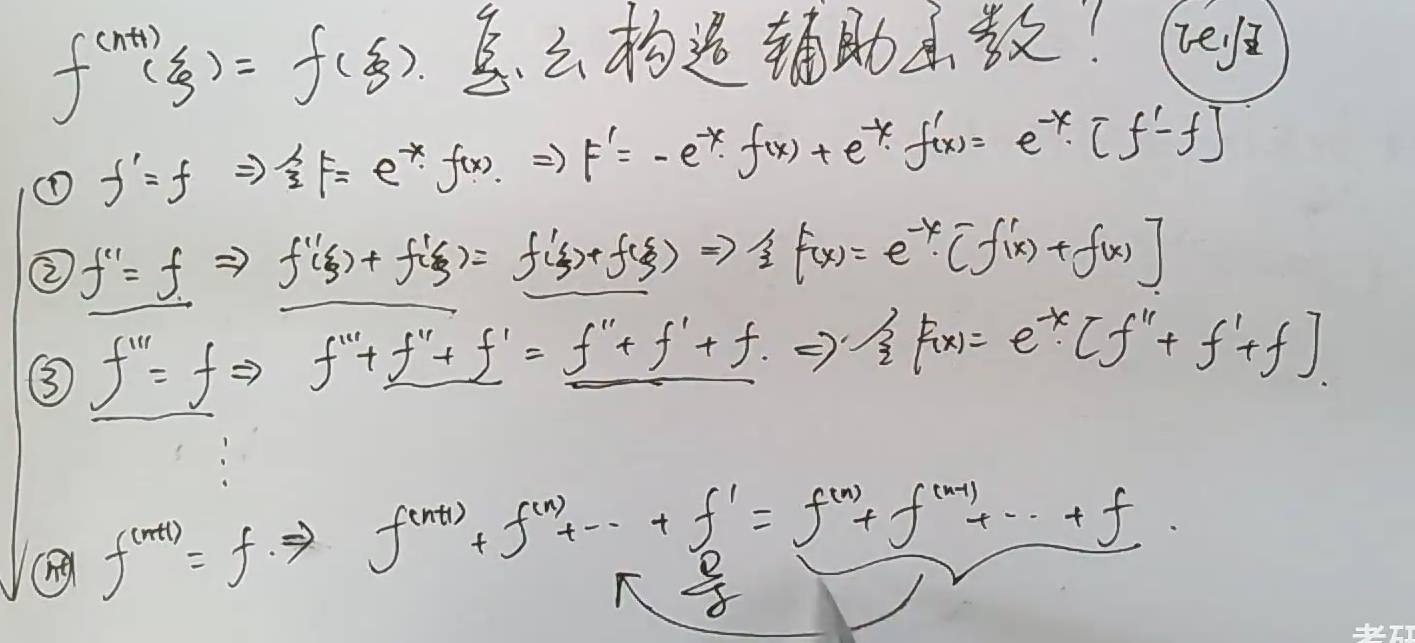 f^{(n+1)}(ξ) = f(ξ). 怎么构造辅助函数! 证归
① f' = f ⇒ 令 F = e^{-x}·f(x). ⇒ F' = -e^{-x}·f(x) + e^{-x}·f'(x) = e^{-x}·[f'-f]
② f'' = f ⇒ f''(ξ) + f'(ξ) = f'(ξ) + f(ξ) ⇒ 令 F(x) = e^{-x}·[f'(x) + f(x)]
③ f''' = f ⇒ f''' + f'' + f' = f'' + f' + f. ⇒ 令 F(x) = e^{-x}·[f'' + f' + f].
⋮
(n+1) f^{(n+1)} = f. ⇒ f^{(n+1)} + f^{(n)} + ... + f' = f^{(n)} + f^{(n-1)} + ... + f.
考研